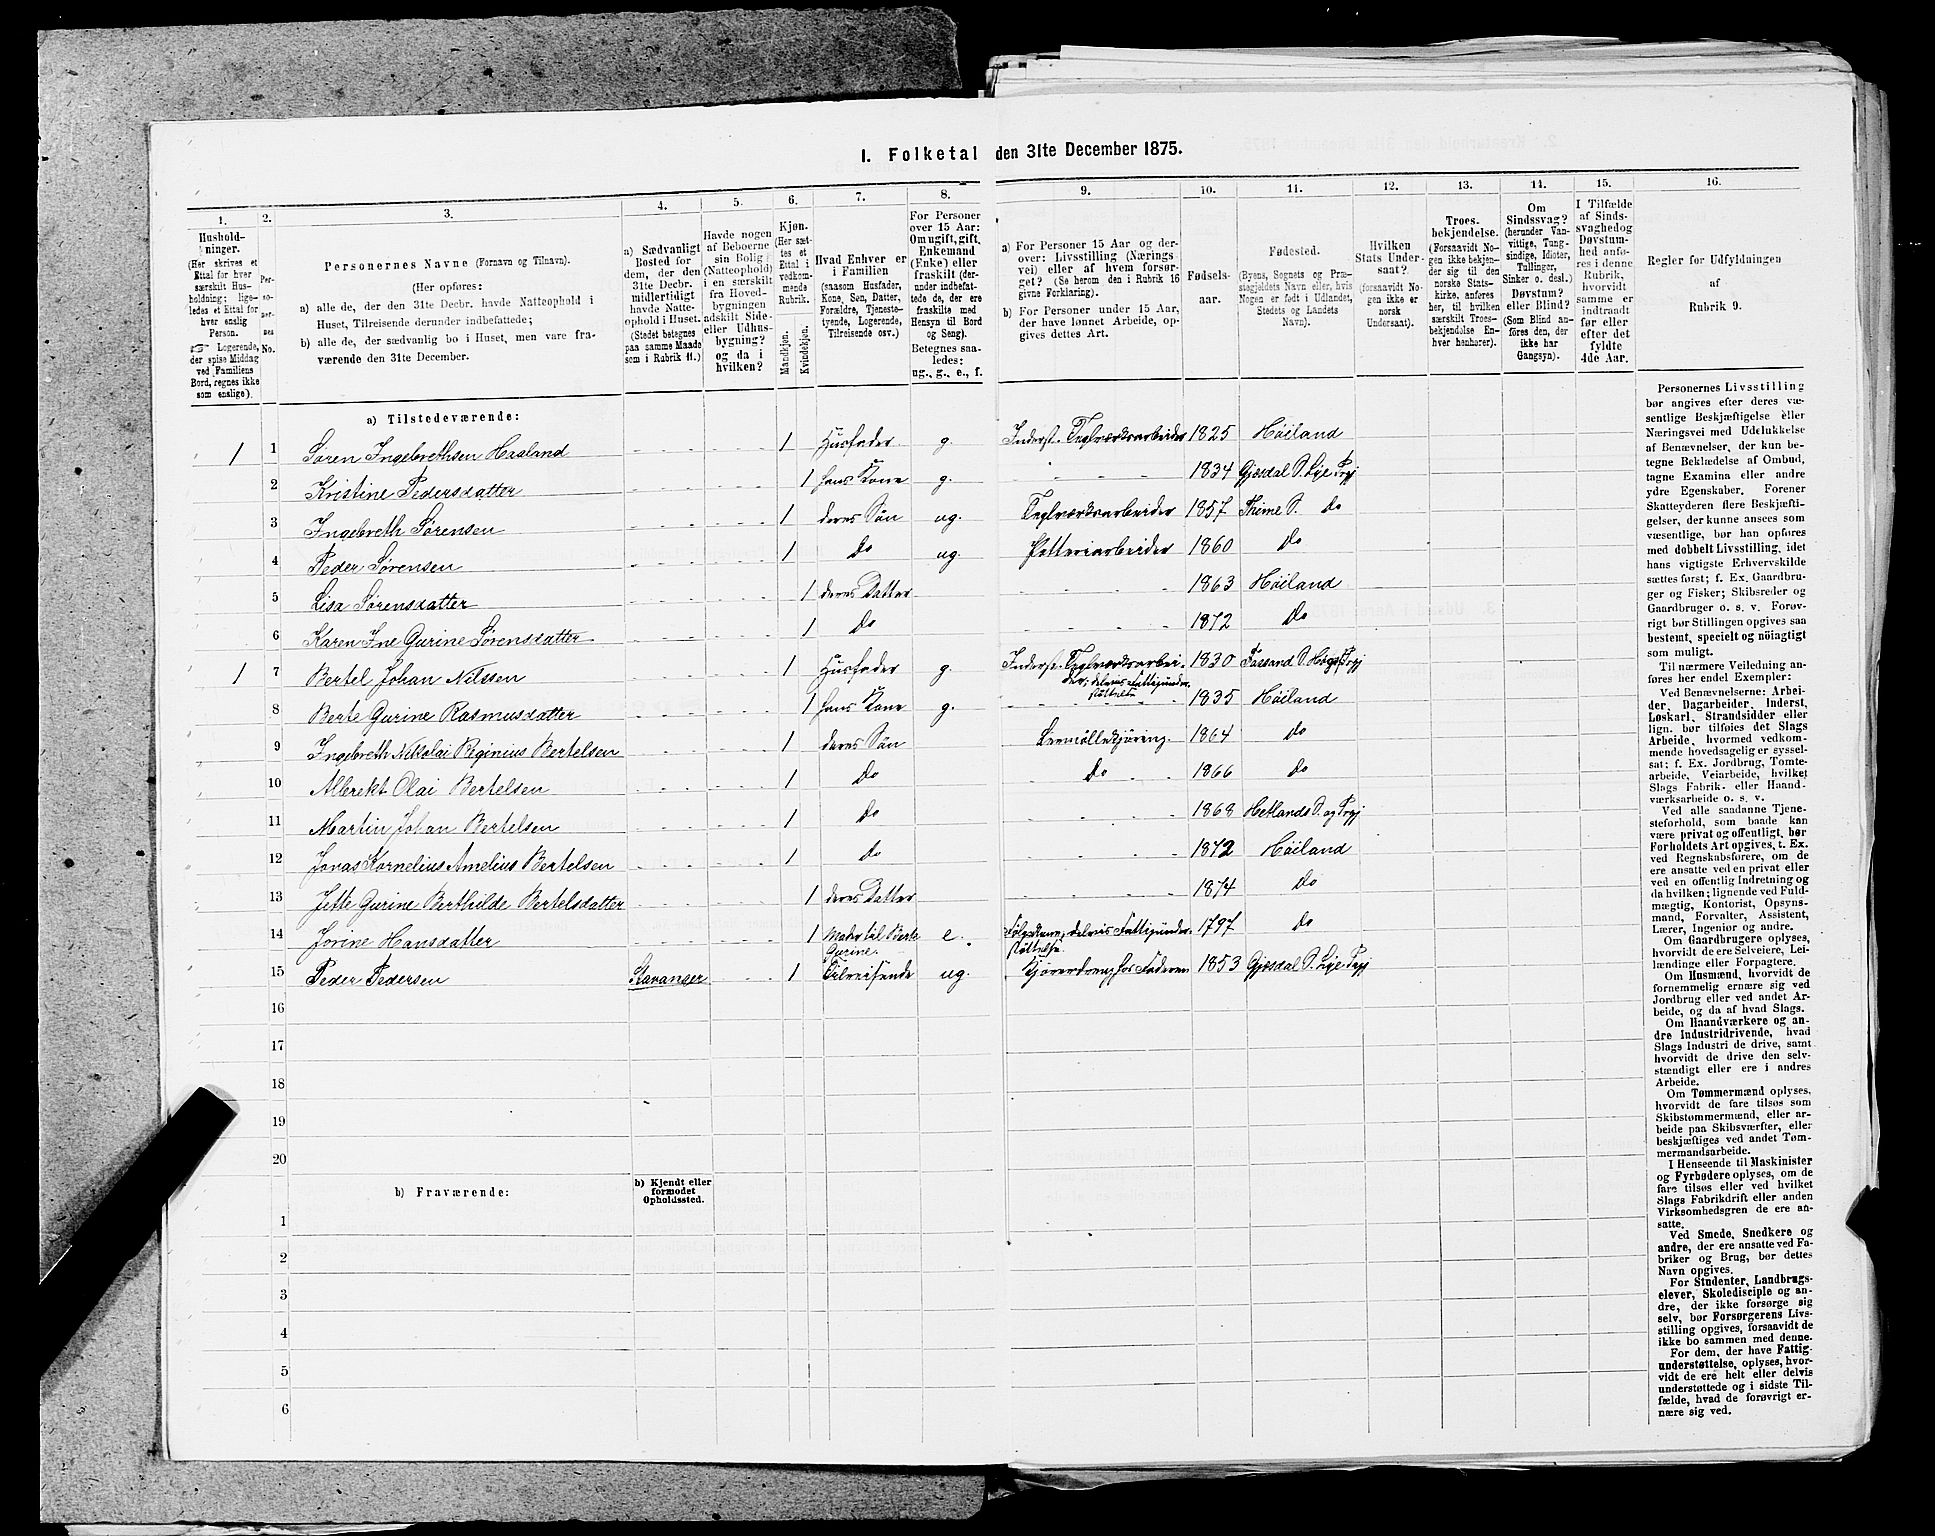 1. Folketal den 31te December 1875.
1. 2. 3. 4. 5. 6. 7. 8. 9. 10. 11. 12. 13. 14. 15. 16.
Hushold-
ninger.
(Her skrives et
Ettal for hver
særskilt Hus-
holdning; lige-
ledes et Ettal for
hver enslig
Person.
☞ Logerende,
der spise Middag
ved Familiens
Bord, regnes ikke
som enslige).
Per-
so-
ner-
nes
No.
Personernes Navne (Fornavn og Tilnavn).
(Her opføres:
a) alle de, der den 31te Decbr. havde Natteophold i
Huset, Tilreisende derunder indbefattede;
b) alle de, der sædvanlig bo i Huset, men vare fra-
værende den 31te December.
a) Sædvanligt
Bosted for
dem, der den
31te Decbr.
midlertidigt
havde Natte-
ophold i Huset.
(Stedet betegnes
paa samme Maade
som i Rubrik 11.)
Havde nogen
af Beboerne
sin Bolig
(Natteophold)
i en særskilt
fra Hoved-
bygningen
adskilt Side-
eller Udhus-
bygning?
og da i
hvilken?
Kjøn.
(Her sæt-
tes et
Ettal i
vedkom-
mende
Rubrik.
Mandkjøn.
Kvindekjøn.
Hvad Enhver er
i Familien
(saasom Husfader,
Kone, Søn, Datter,
Forældre, Tjeneste-
tyende, Logerende,
Tilreisende osv.)
For Personer
over 15 Aar:
Om ugift, gift,
Enkemand
(Enke) eller
fraskilt (der-
under indbefat-
tede de, der ere
fraskilte med
Hensyn til Bord
og Seng).
Betegnes saa-
ledes:
ug., g., e., f.
a) For Personer 15 Aar og der-
over: Livsstilling (Nærings
vei) eller af hvem forsør-
get? (Se herom den i Rubrik 16
givne Forklaring).
b) For Personer under 15 Aar,
der have lønnet Arbeide, op-
gives dettes Art.
Fødsels-
aar.
Fødested.
(Byens, Sognets og Præ-
stegjeldets Navn eller, hvis
Nogen er født i Udlandet,
Stedets og Landets
Navn).
Hvilken
Stats Under-
saat?
(forsaavidt No-
gen ikke er
norsk
Undersaat).
Troes-
bekjendelse.
(Forsaavidt No-
gen ikke bekjen-
der sig til den
norske Stats-
kirke, anføres
her, til hvilken
særskilt Troes-
bekjendelse En-
hver henhører).
Om
Sindssvag?
(herunder Van-
vittige, Tung-
sindige, Idioter,
Tullinger,
Sinker o. desl.)
Døvstum?
eller Blind?
(Som Blind an-
føres den, der
ikke har
Gangsyn).
I Tilfælde
af Sinds-
svaghed og
Døvstum-
hed anfø-
res i denne
Rubrik,
hvorvidt
samme er
indtraadt
før eller
efter det
fyldte
4de Aar.
Regler for Udfyldningen
af
Rubrik 9.
a) Tilstedeværende:
1 1 Søren Ingebrethsen Haaland 1 Husfader g. Inderst. Teglværksarbeider 1825 Høiland
2 Kristine Pedersdatter 1 hans Kone g. 1834 Gjesdal S. Lye Prgj
3 Ingebreth Sørensen 1 deres Søn ug. Teglværksarbeider 1857 Thime S. Do
4 Peder Sørensen 1 Do ug. Potteriarbeider 1860 Do
5 Lisa Sørensdatter 1 deres Datter 1863 Høiland
6 Karen Ine Gurine Sørensdatter 1 Do 1872 Do
1 7 Bertel Johan Nilssen 1 Husfader g. Inderst. Teglværksarbei- 1830 Fossand S. Høgsf. Prgj
der; delvis Fattigunder-
støttelse
8 Berte Gurine Rasmusdatter 1 hans Kone g. 1835 Høiland
9 Ingebreth Nikolai Reginius Bertelsen 1 deres Søn Leermøllekjøring 1864 Do
10 Albrekt Olai Bertelsen 1 Do Do 1866 Do
11 Martin Johan Bertelsen 1 Do 1868 Hetlands S. og Prgj
12 Jonas Kornelius Amelius Bertelsen 1 Do 1872 Høiland
13 Jette Gurine Berthilde Bertelsdatter 1 deres Datter 1874 Do
14 Jorine Hansdatter 1 Moder til Berte e. Følgekone, delvis Fattigunder- 1797 Do
Gurine. støttelse.
15 Peder Pedersen Stavanger 1 Tilreisende ug. Kjøredreng for Faderen 1853 Gjesdal S. Lye Prgj
16
17
18
19
20
b) Fraværende:
b) Kjendt eller
formodet
Opholdssted.
1
2
3
4
5
6
Personernes Livsstilling
bør angives efter deres væ-
sentlige Beskjæftigelse eller
Næringsvei med Udelukkelse
af Benævnelser, der kun be-
tegne Beklædelse af Ombud,
tagne Examina eller andre
ydre Egenskaber. Forener
Skatteyderen flere Beskjæfti-
gelser, der kunne ansees som
væsentlige, bør han opføres
med dobbelt Livsstilling, idet
hans vigtigste Erhvervskilde
sættes først; f. Ex. Gaardbru-
ger og Fisker; Skibsreder og
Gaardbruger o. s. v. Forøv-
rigt bør Stillingen opgives saa
bestemt, specielt og nøiagtigt
som muligt.
Til nærmere Veiledning an-
føres her endel Exempler:
Ved Benævnelserne: Arbei-
der, Dagarbeider, Inderst,
Løskarl, Strandsidder eller
lign. bør tilføies det Slags
Arbeide, hvormed vedkom-
mende hovedsagelig er syssel-
sat; f. Ex. Jordbrug, Tomte-
arbeide, Veiarbeide, hvilket
Slags Fabrik- eller Haand-
værksarbeide o. s. v.
Ved alle saadanne Tjene-
steforhold, som baade kan
være privat og offentligt, bør
Forholdets Art opgives, t. Ex.
ved Regnskabsførere, om de
ere ansatte ved en privat eller
ved en offentlig Indretning og
da hvilken; lignende ved Fuld-
mægtig, Kontorist, Opsyns-
mand, Forvalter, Assistent,
Lærer, Ingeniør og andre.
Om Gaardbrugere oplyses,
hvorvidt de ere Selveiere, Lei-
lændinge eller Forpagtere.
Om Husmænd, hvorvidt de
fornemmelig ernære sig ved
Jordbrug eller ved andet Ar-
beide, og da af hvad Slags.
Om Haandværkere og an-
dre Industridrivende, hvad
Slags Industri de drive, samt
hvorvidt de drive den selv-
stændigt eller ere i andres
Arbeide.
Om Tømmermænd oplyses,
hvorvidt de fare tilsøs som
Skibstømmermænd, eller ar-
beide paa Skibsværfter, eller
beskjæftiges ved andet Tøm-
mermandsarbeide.
I Henseende til Maskinister
og Fyrbødere oplyses, om de
fare tilsøs eller ved hvilket
Slags Fabrikdrift eller anden
Virksomhedsgren de ere an-
satte.
Ved Smede, Snedkere og
andre, der ere ansatte ved Fa-
briker og Brug, bør dettes
Navn opgives.
For Studenter, Landbrugs-
elever, Skoledisciple og an-
dre, der ikke forsørge sig
selv, bør Forsørgerens Livs-
stilling opgives, forsaavidt de
ikke bo sammen med denne.
For dem, der have Fattig-
understøttelse, oplyses, hvor-
vidt de ere helt eller delvis
understøttede og i sidste Til-
fælde, hvad de forøvrigt er-
nære sig ved.